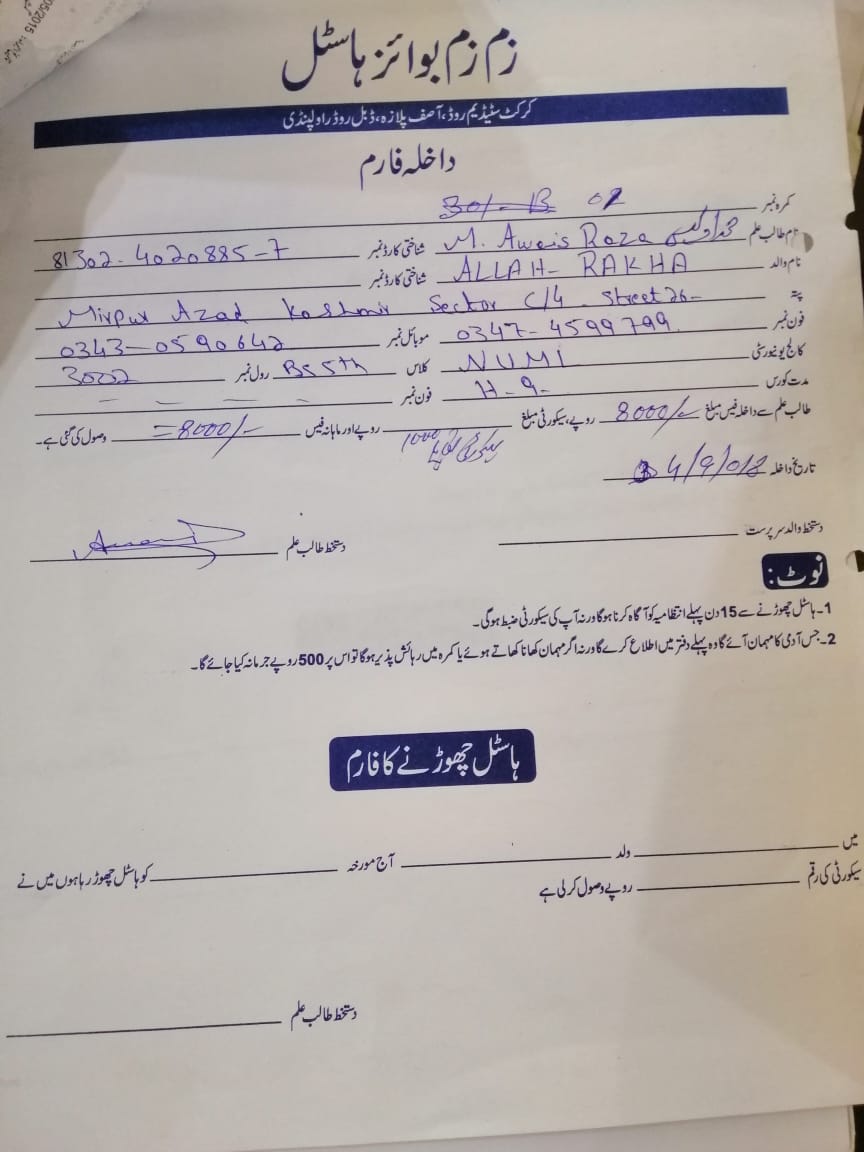 زم زم بوائز ہاسٹل
کرکٹ سٹیڈیم روڈ، آصف پلازہ، ڈبل روڈ راولپنڈی
داخلہ فارم
کمرہ نمبر 02
نام طالب علم M. Awais Raza محمد اویس شناختی کارڈ نمبر 81302-4020885-7
نام والد ALLAH-RAKHA شناختی کارڈ نمبر
پتہ Mirpur Azad Kashmir Sector C/4 Street 26
فون نمبر 0347-4599799 موبائل نمبر 0343-0590642
کالج یونیورسٹی NUML کلاس BS 5th رول نمبر 3002
مدت کورس H-9 فون نمبر
طالب علم سے داخلہ فیس مبلغ 8000/- روپے، سیکورٹی مبلغ سیکورٹی 1000 روپے اور ماہانہ فیس =8000/- وصول کی گئی ہے۔
تاریخ داخلہ 4/9/018
دستخط والد سرپرست دستخط طالب علم
نوٹ:
1۔ ہاسٹل چھوڑنے سے 15 دن پہلے انتظامیہ کو آگاہ کرنا ہوگا ورنہ آپ کی سیکورٹی ضبط ہوگی۔
2۔ جس آدمی کا مہمان آئے گا وہ پہلے دفتر میں اطلاع کرے گا ورنہ اگر مہمان کھانا کھاتے ہوئے یا کمرہ میں رہائش پذیر ہوگا تو اس پر 500 روپے جرمانہ کیا جائے گا۔
ہاسٹل چھوڑنے کا فارم
میں ولد آج مورخہ کو ہاسٹل چھوڑ رہا ہوں میں نے
سیکورٹی کی رقم روپے وصول کر لی ہے
دستخط طالب علم